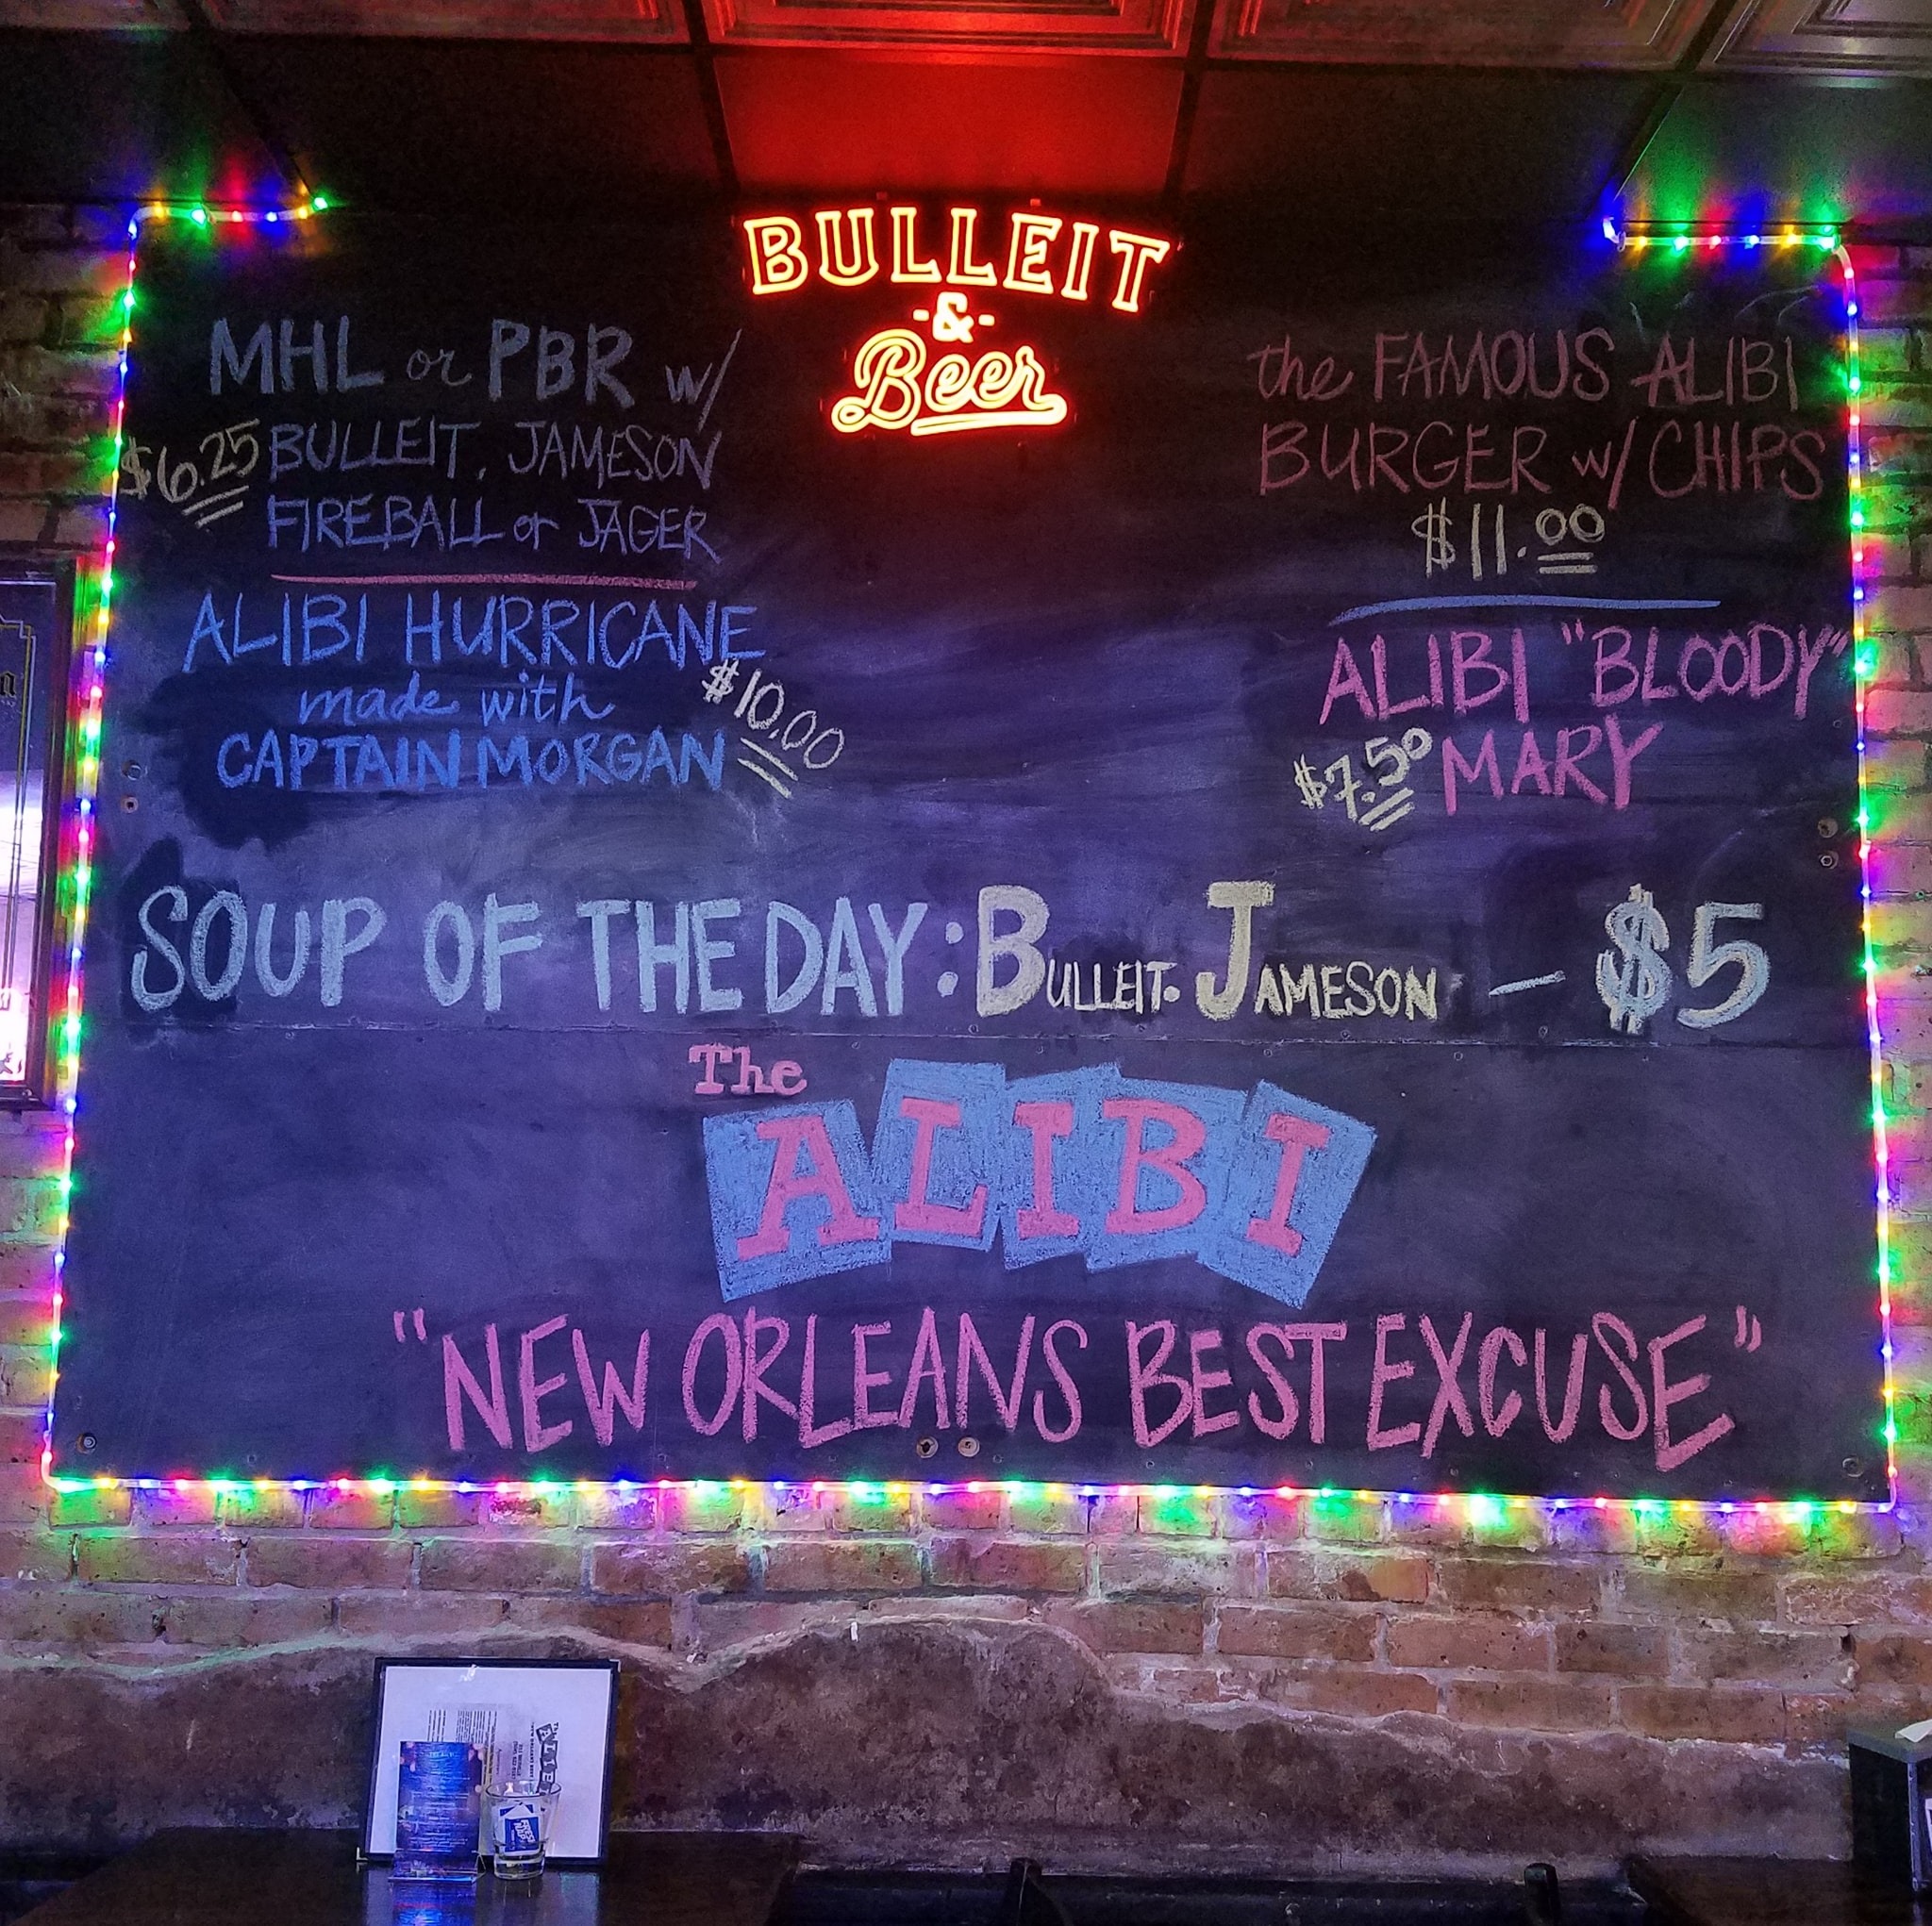 BULLEIT
-&-
Beer
MHL or PBR w/
$6.25 BULLEIT, JAMESON
FIREBALL or JAGER
ALIBI HURRICANE
made with
$10.00
CAPTAIN MORGAN
the FAMOUS ALIBI
BURGER w/ CHIPS
$11.00
ALIBI "BLOODY"
$7.50 MARY
SOUP OF THE DAY: BULLEIT. JAMESON — $5
The
ALIBI
"NEW ORLEANS BEST EXCUSE"